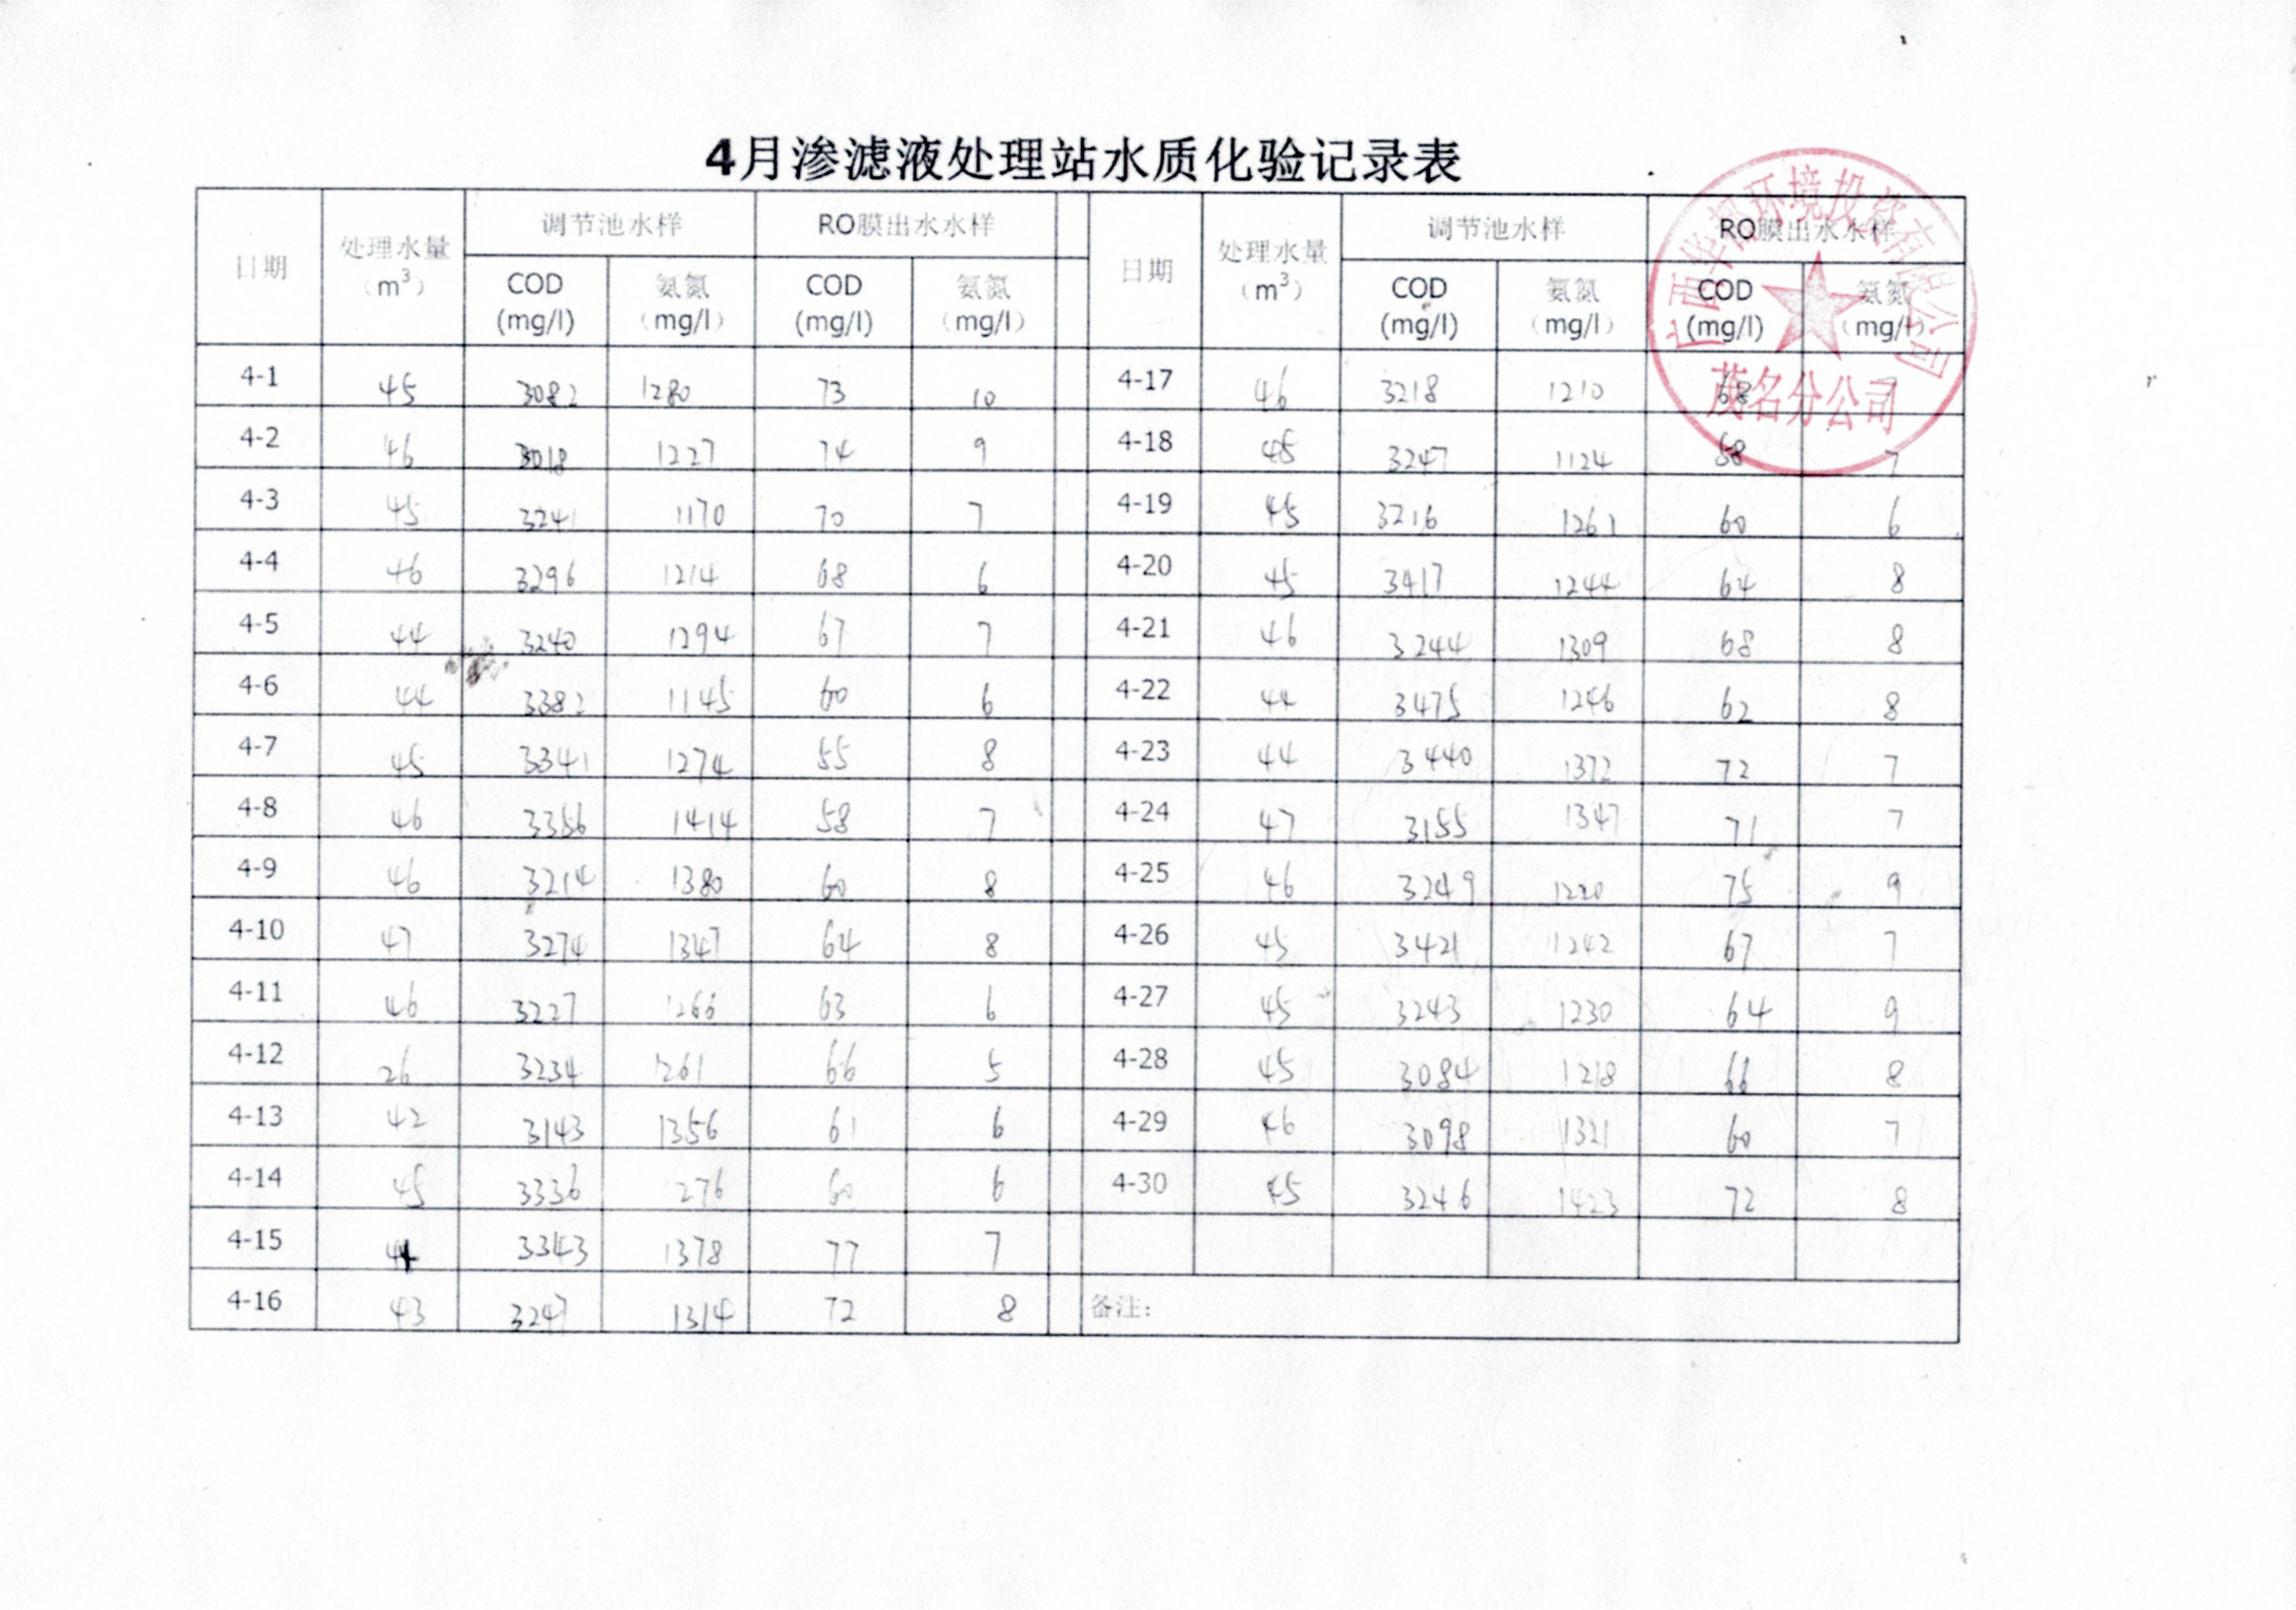 4月渗滤液处理站水质化验记录表
日期 处理水量（m³） 调节池水样 RO膜出水水样 日期 处理水量（m³） 调节池水样 RO膜出水水样
COD (mg/l) 氨氮（mg/l） COD (mg/l) 氨氮（mg/l） COD (mg/l) 氨氮（mg/l） COD (mg/l) 氨氮（mg/l）
4-1 45 3082 1280 73 10 4-17 46 3218 1210 68 7
4-2 46 3018 1227 74 9 4-18 45 3247 1124 58 7
4-3 45 3241 1170 70 7 4-19 45 3216 1261 60 6
4-4 46 3296 1214 68 6 4-20 45 3417 1244 64 8
4-5 44 3240 1294 67 7 4-21 46 3244 1309 68 8
4-6 44 3382 1145 60 6 4-22 44 3475 1246 62 8
4-7 45 3341 1274 55 8 4-23 44 3440 1372 72 7
4-8 46 3356 1414 58 7 4-24 47 3155 1347 71 7
4-9 46 3214 1380 60 8 4-25 46 3249 1220 75 9
4-10 47 3274 1347 64 8 4-26 45 3421 1242 67 7
4-11 46 3227 1266 63 6 4-27 45 3243 1230 64 9
4-12 26 3234 1261 66 5 4-28 45 3084 1218 66 8
4-13 42 3143 1356 61 6 4-29 46 3098 1321 60 7
4-14 45 3336 1276 60 6 4-30 45 3246 1423 72 8
4-15 44 3343 1378 77 7
4-16 43 3247 1314 72 8 备注：
环境投资有限公司
茂名分公司